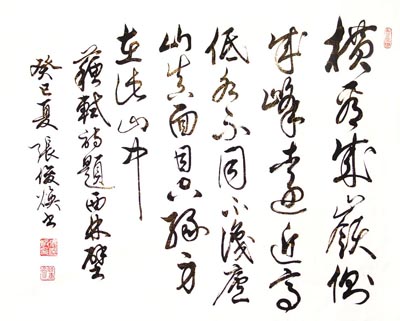 横看成嶺側
成峰遠近高
低各不同不識廬
山真面目只緣身
在此山中
蘇軾詩題西林壁
癸巳夏張俊煥書